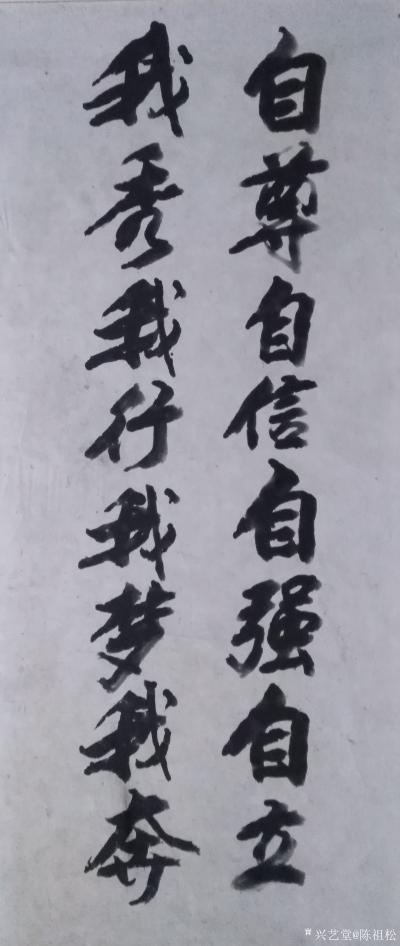 自尊自信自强自立
我秀我行我梦我奔
兴艺堂@陈祖松